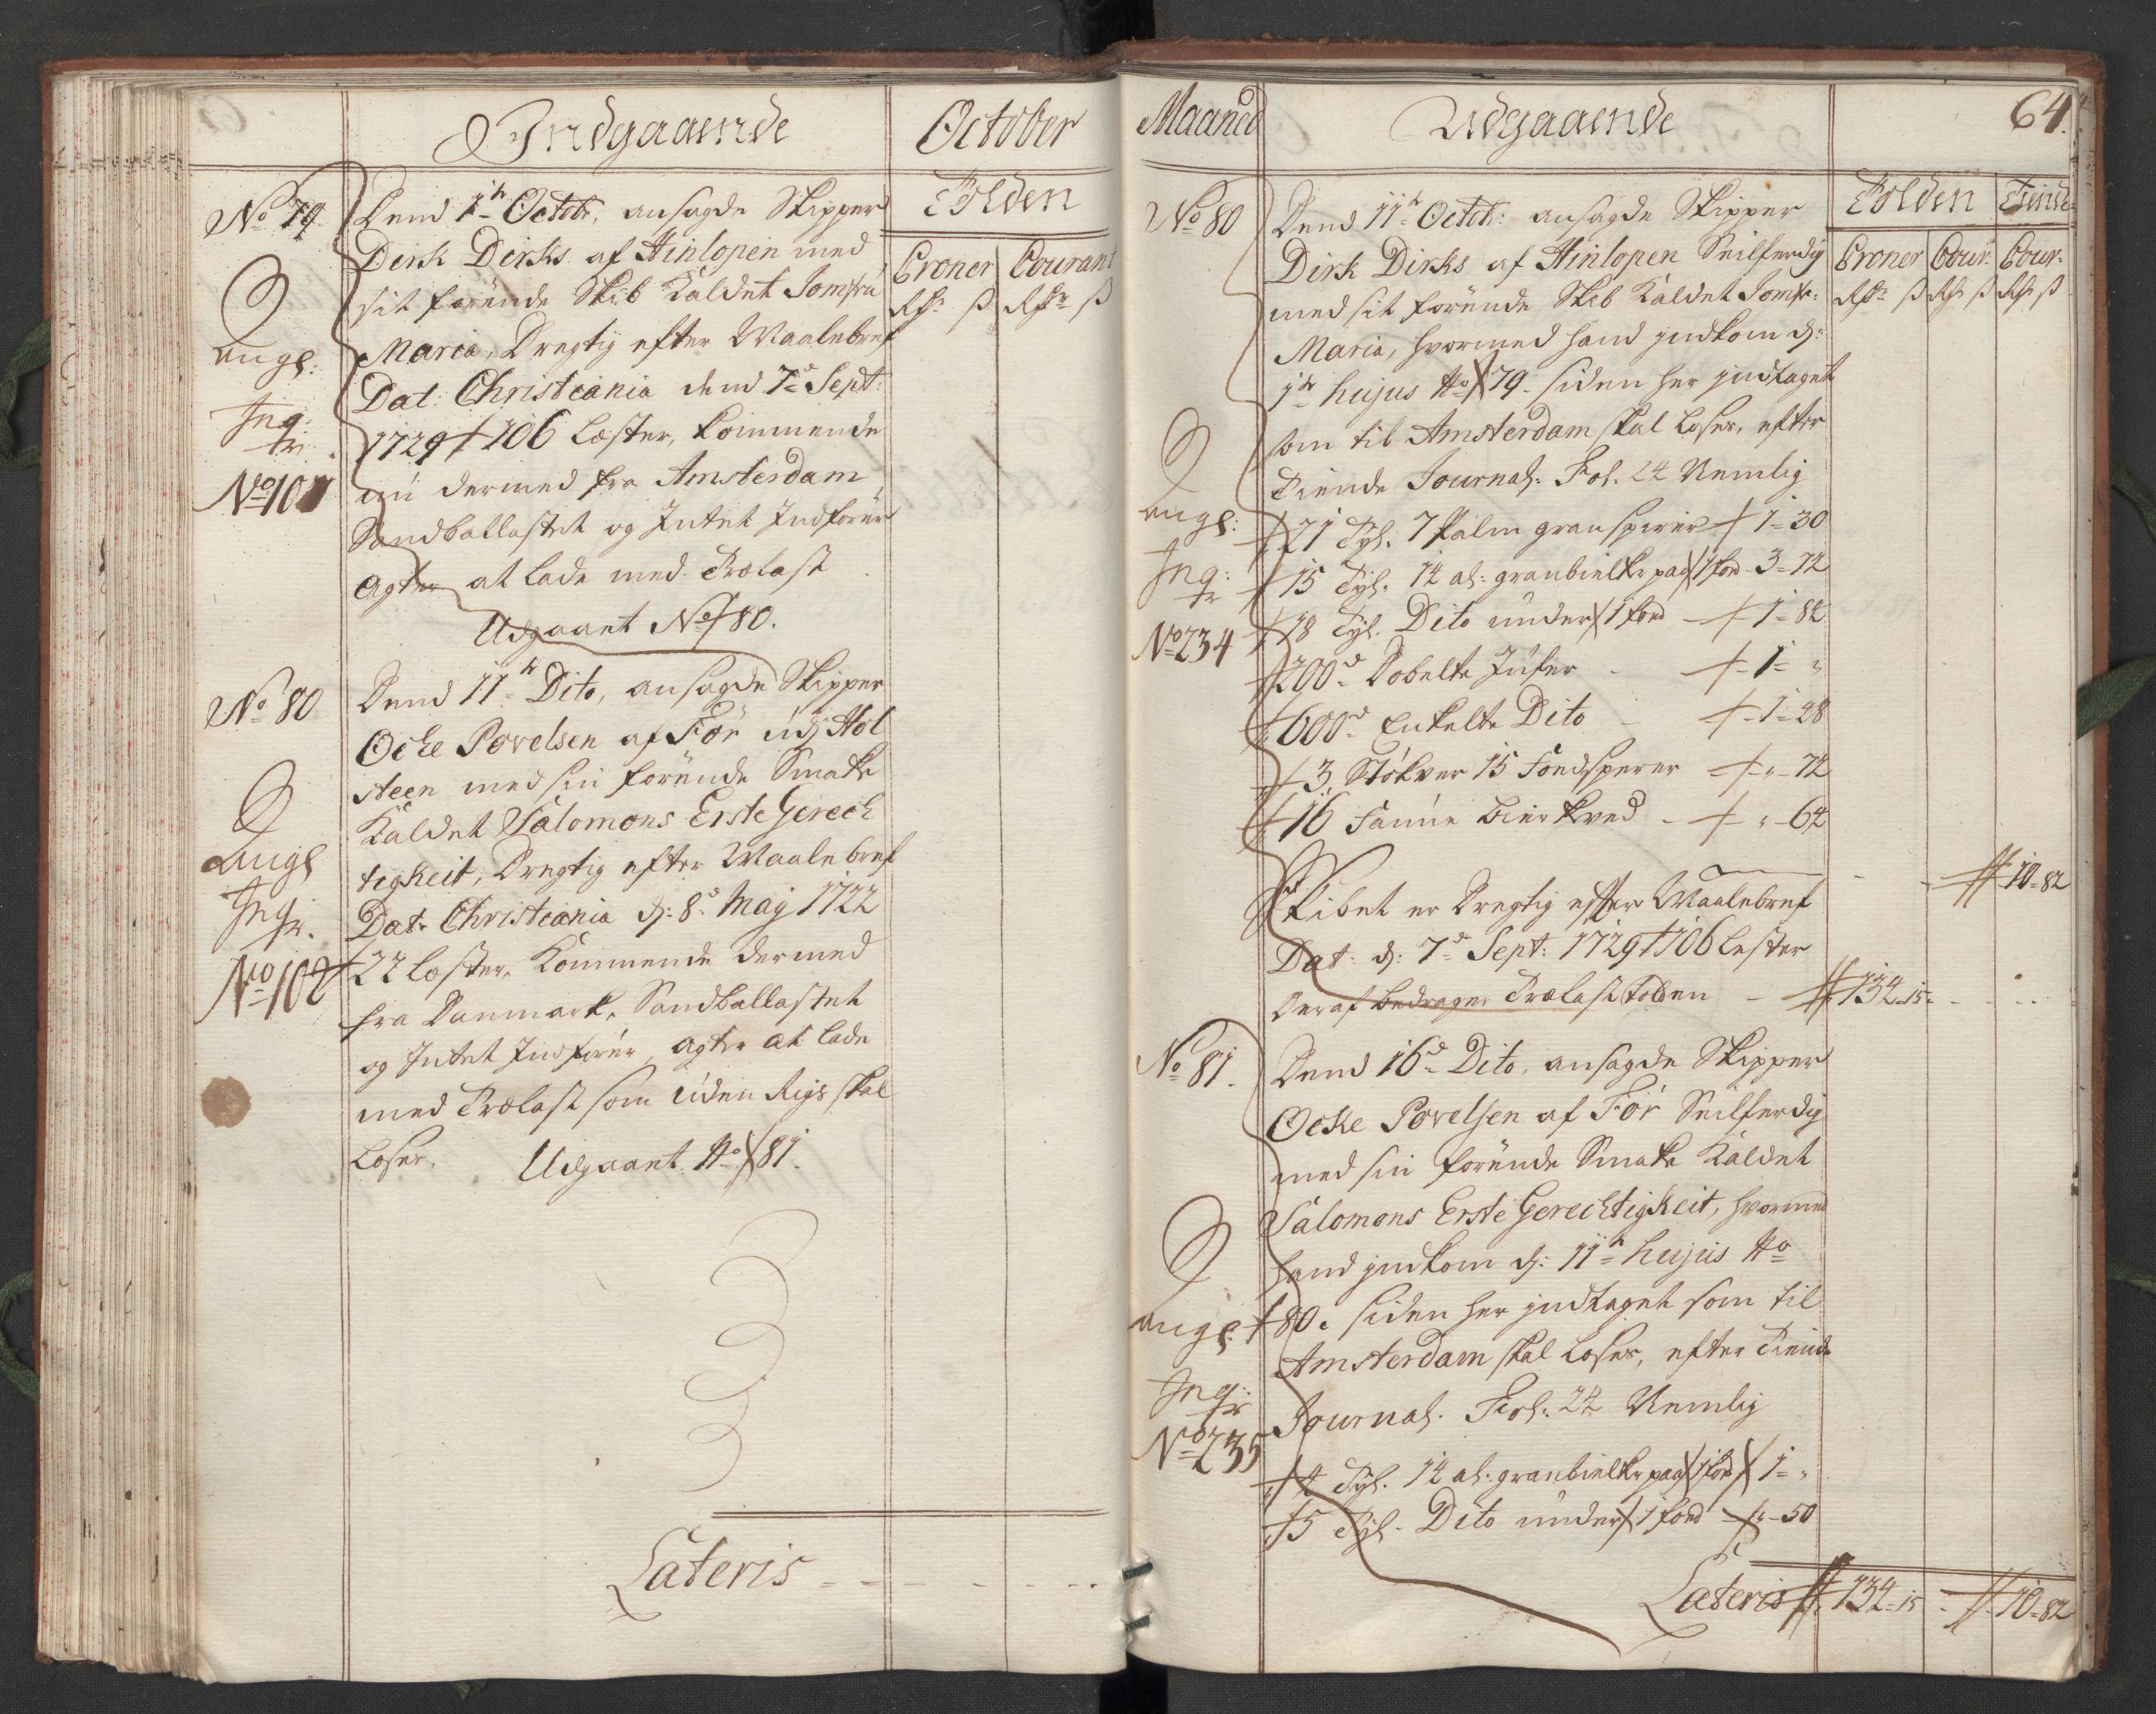 Indgaaende
October
Tolden
Croner Courant
Rdr ß Rdr ß
No 79.
Dend 1te Octobr: ansagde Skipper
Dirk Dirks af Hinlopen med
sitførende Skib Kaldet Jomfru
Maria, Dregtig efter Maalebref
Dat: Christiania dend 7de Sept:
1729 / 106 Læster, kommende
nu dermed fra Amsterdam
Sandballastet og Intet Indfører
Agter at lade med Trælast
Udgaaet No 80.
angl:
Inq:
No 107
No 80
Dend 11te Dito, ansagde Skipper
Ocke Povelsen af Før udj Hol
steen med sin førende Smake
Kaldet Salomons Erste Gerech
tigkeit, Dregtig efter Maalebref
Dat: Christiania d: 8de Maij 1722
22 Læster, Kommende dermed
fra Danmark, Sandballastet
og Intet Indfører, agter at lade
med Trælast som uden Rigs skal
Loser. Udgaaet No 81.
angl
Inq:
No 108
Lateris
Maaned
Udgaaende
64.
Tolden Tiende
Croner Cour. Cour.
Rdr ß Rdr ß Rdr ß
No 80
Dend 11te Octob: ansagde Skipper
Dirk Dirks af Hinlopen Seilferdig
med sit førende Skib Kaldet Jomfr:
Maria, hvormed hand indkom d:
1te hujus No 79. siden her indtaget
som til Amsterdam skal Loser, efter
Tiende Journal. Fol. 24 Nemlig
angl:
Inq:
No 234
21 Tyl. 7 Palm granspirer 1 = 30
15 Tyl. 14 al: granbielker paa 1 fod 3 = 72
18 Tyl. Dito under 1 fod 1 = 82
200de Dobelte Jufer 1 = "
600de Enkelte Dito 1 = 48
3 Støkver 15 Fondsperer " - 72
16 Faune Bierkved " - 64
10 = 82
Skibet er Dregtig efter Maalebref
Dat: d: 7de Sept: 1729 / 106 Lester
Deraf bedrager Trælast Tolden 134 = 15
No 81.
Dend 16de Dito, ansagde Skipper
Ocke Povelsen af Før Seilferdig
med sin førende Smake Kaldet
Salomons Erste Gerechtigkeit, hvormed
hand indkom d: 11te hujus No
80. siden her indtaget som til
Amsterdam skal Loser, efter Tiende
Journal. Fol: 24 Nemlig
angl:
Inq:
No 235
4 Tyl. 14 al: granbielker paa 1 fod 1 = "
5 Tyl. Dito under 1 fod " - 50
Lateris 134 = 15 - 10 = 82